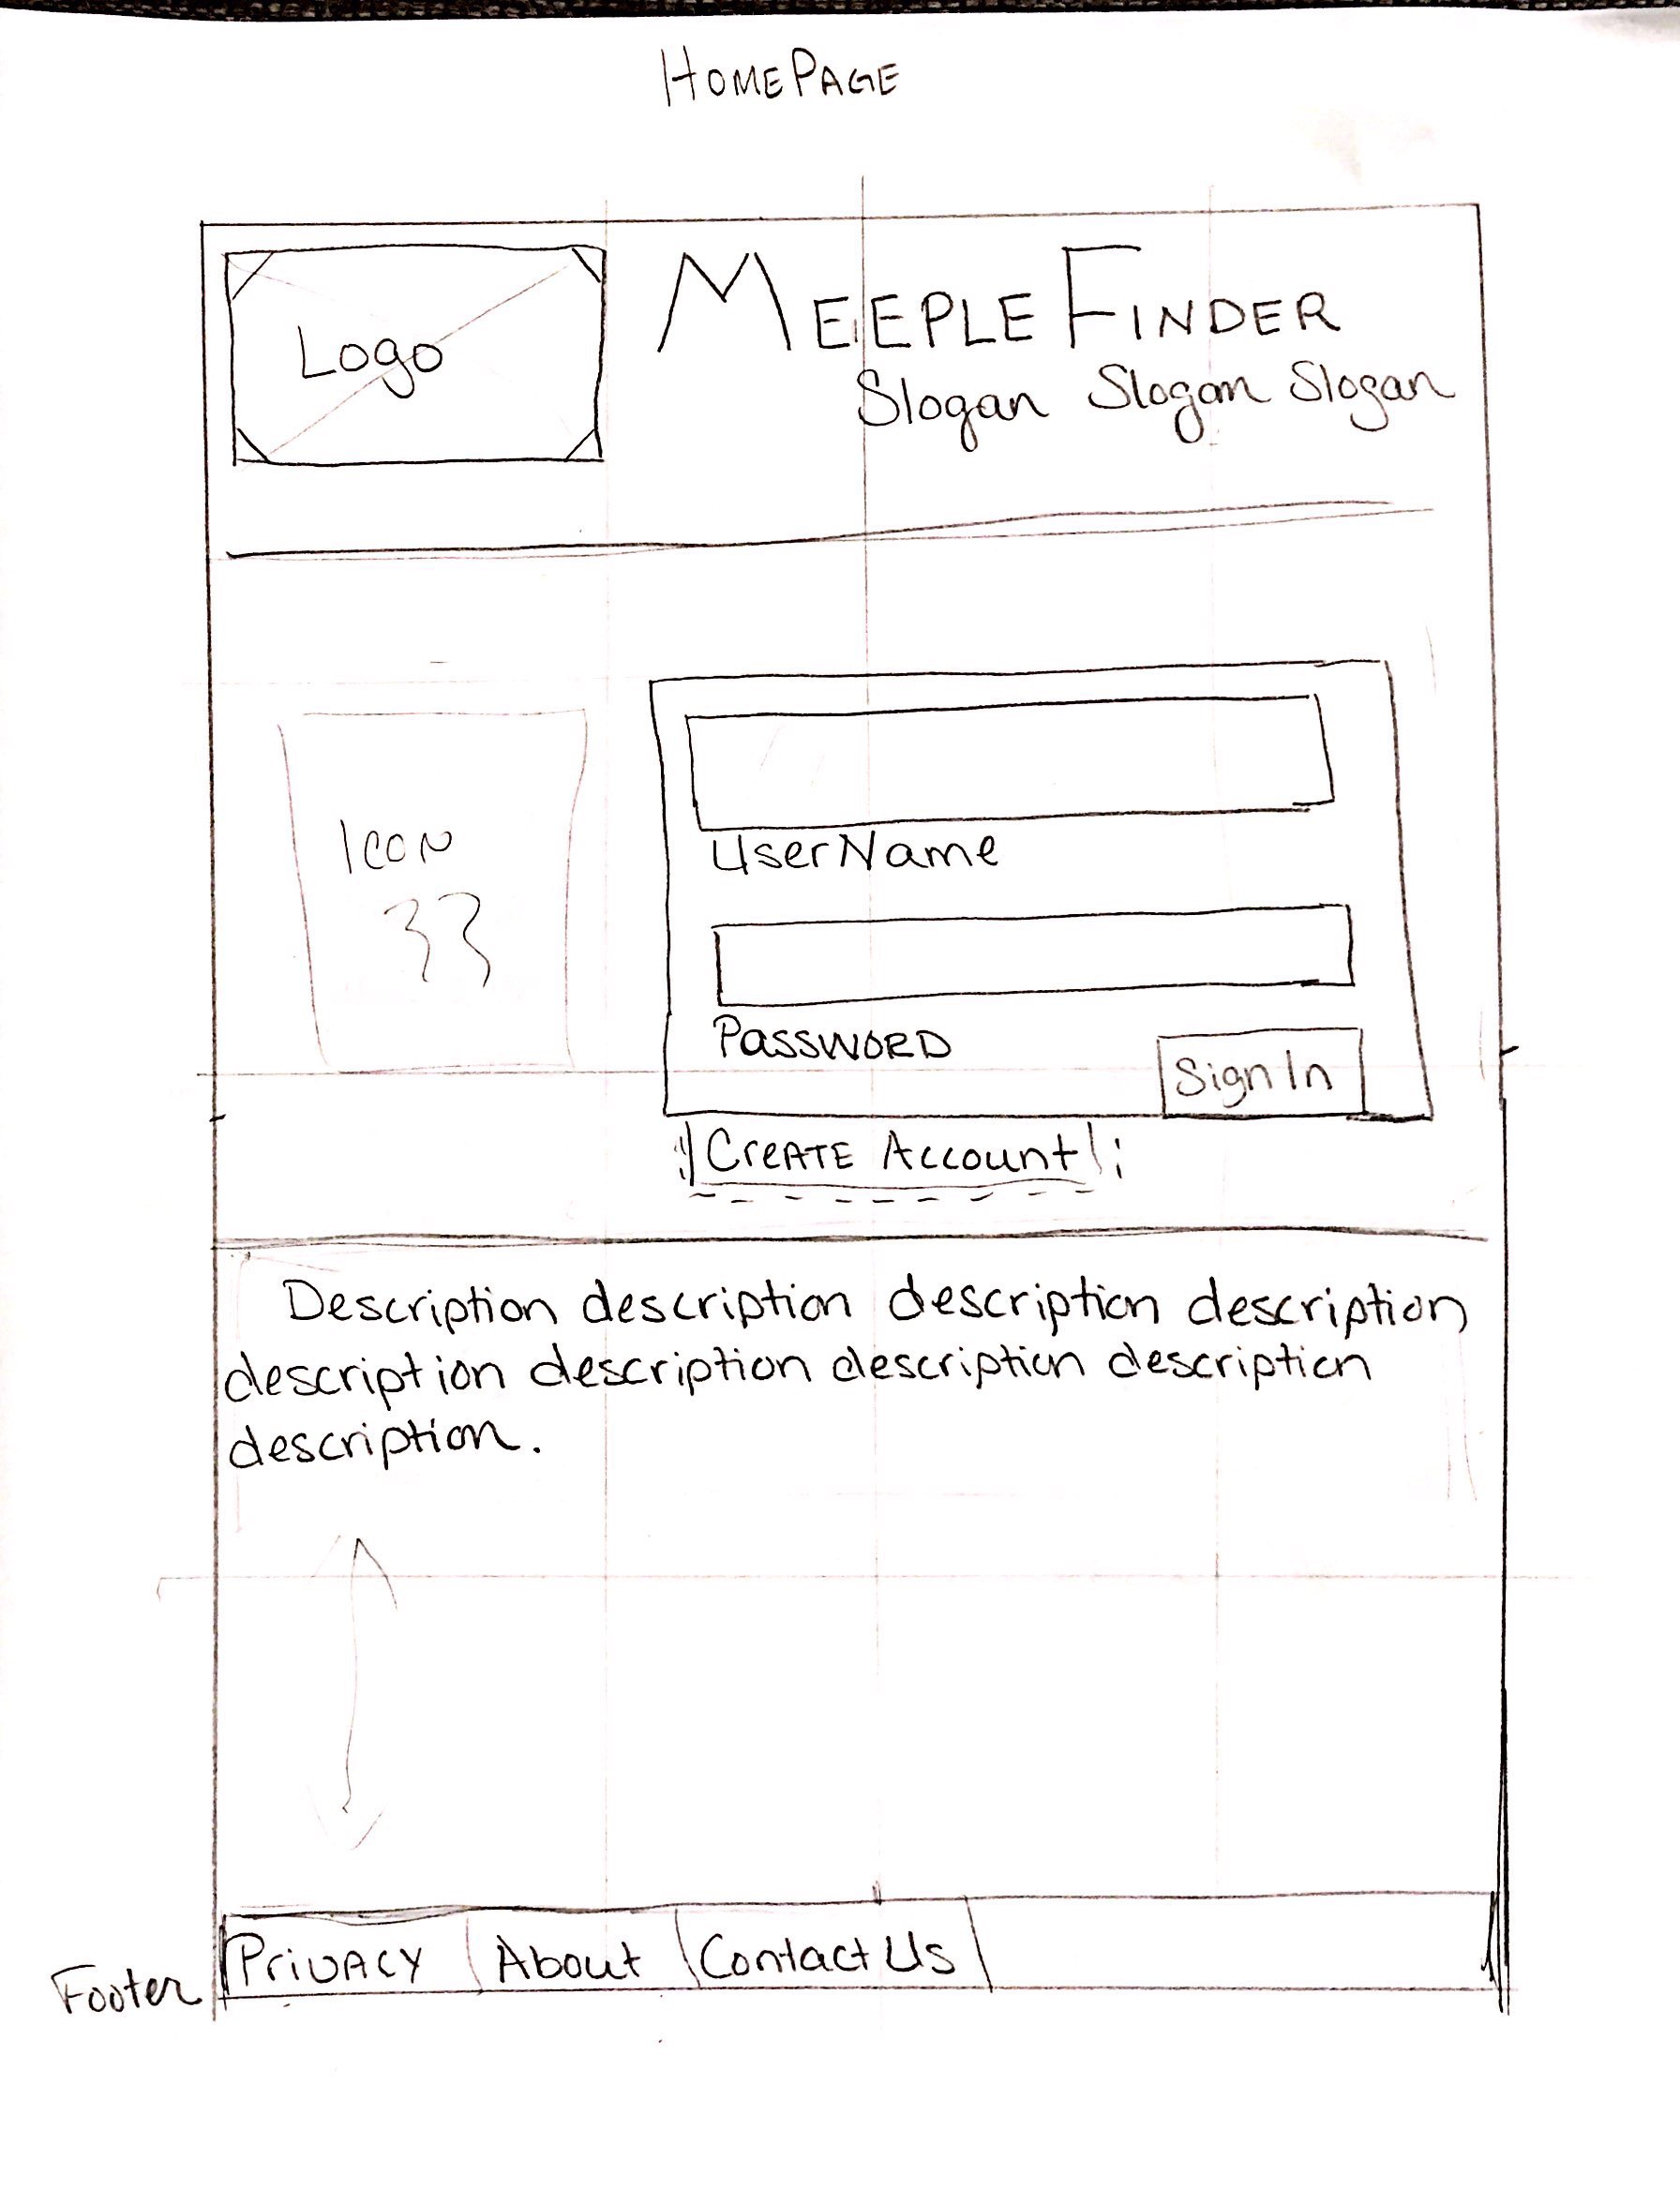 HOMEPAGE
Logo
MEEPLE FINDER
Slogan Slogan Slogan
ICON
UserName
PASSWORD
Sign In
CREATE Account
Description description description description
description description description description
description.
Footer
PRIVACY About Contact Us